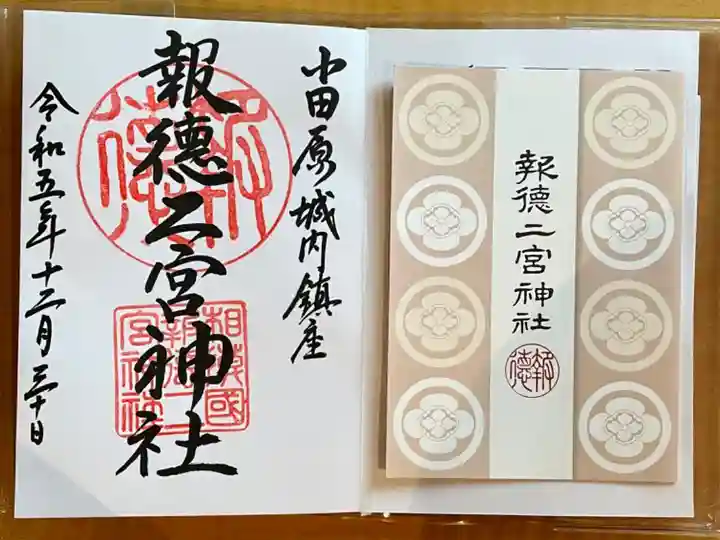 小田原城内鎮座
報徳二宮神社
令和五年十二月三十日
報徳
相模國
報徳二
宮神社
報徳二宮神社
報徳